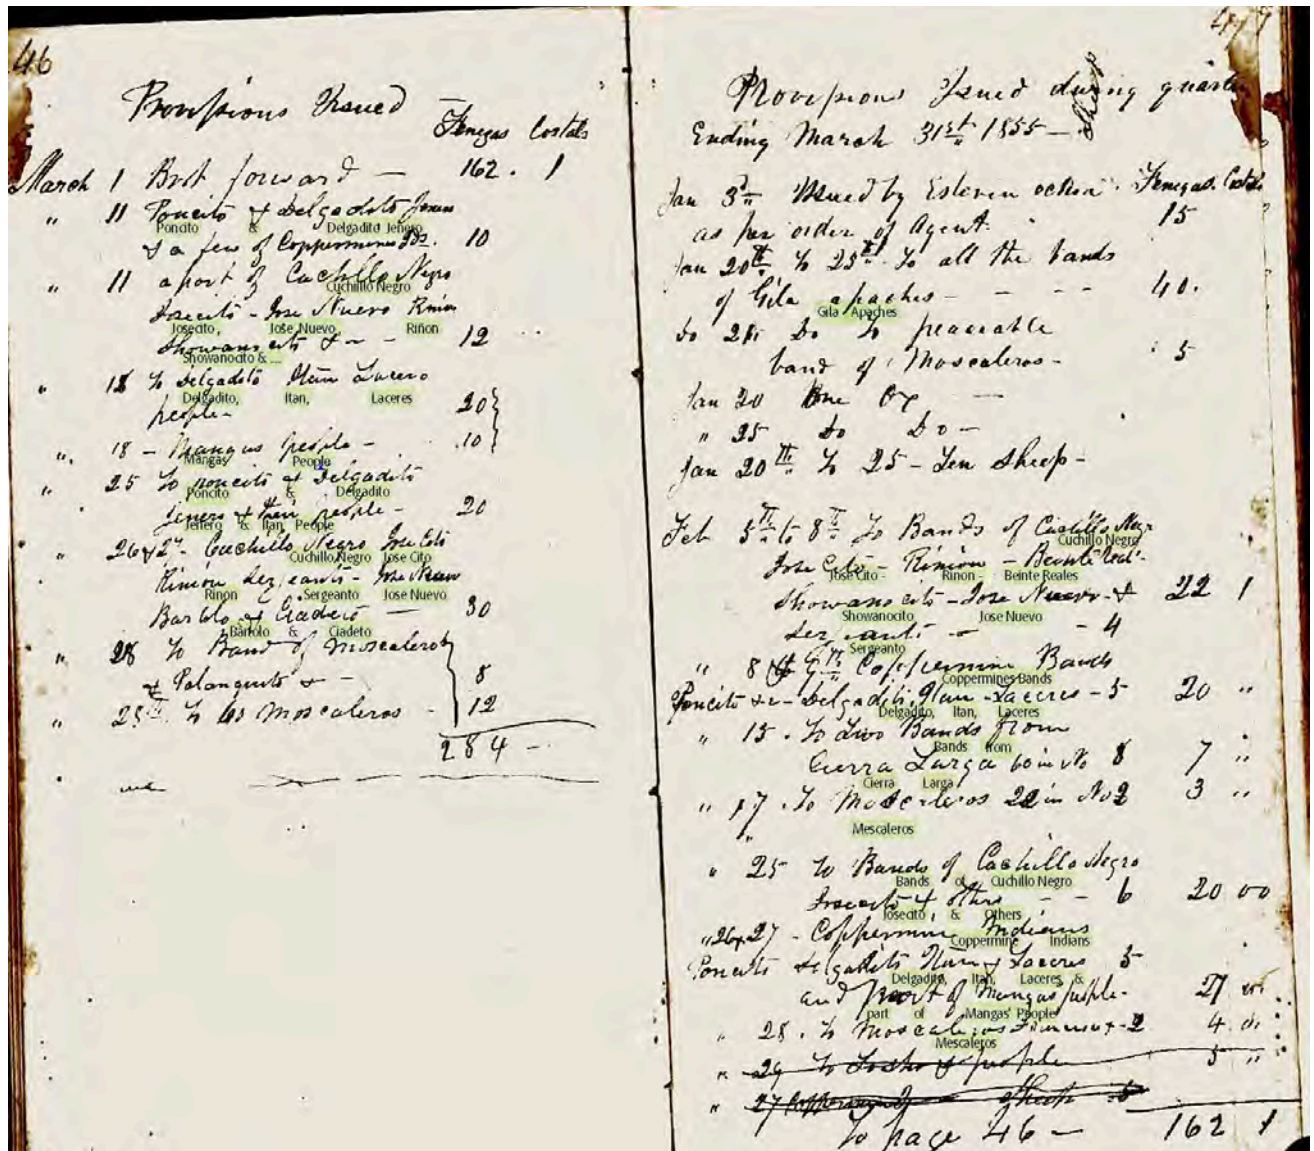 46
Provisions Issued
Fenegas Costals
March 1 Brot forward — 162 . 1
" 11 Poncito & Delgadito Jenero
Poncito & Delgadito Jenero
& a few of Coppermines Ids. 10
" 11 a part of Cuchillo Negro
Cuchillo Negro
Josecito - Jose Nuevo Rinon
Josecito, Jose Nuevo Riñon
Showanocito & - - 12
Showanocito & ...
" 18 To Delgadito Itan Lacero
Delgadito, Itan, Laceres
people - 20
" 18 - Mangas people - 10
Mangas People
" 25 To poncito & Delgadito
Poncito & Delgadito
Jenero & Itan people - 20
Jenero & Itan People
" 26 & 27 - Cuchillo Negro Jose Cito
Cuchillo Negro Jose Cito
Rinion Sergeanto - Jose Nuevo
Rinon Sergeanto Jose Nuevo
Bartolo & Ciadeto — 30
Bartolo & Ciadeto
" 28 To Band of Moscaleros
& Palanquito & - 8
" 28th To Moscaleros - 12
284 -
477
Provisions Issued during quarter
Sheep
Ending March 31st 1855 —
Jan 3d Issued by Esteven Fenegas. Costals
as per order of Agent. 15
Jan 20th to 25th To all the bands
of Gila apaches - - - - 40.
Gila Apaches
Do 25 Do To peaceable
band of Moscaleros - 5
Jan 20 One Ox —
" 25 Do Do -
Jan 20th To 25 - Ten Sheep -
Feb 5th to 8th To Bands of Cuchillo Negr
Cuchillo Negro
Jose Cito - Rinion - Beinte Real
Jose Cito - Rinon - Beinte Reales
Showanocito - Jose Nuevo - & 22 1
Showanocito Jose Nuevo
Sergeanto - - 4
Sergeanto
" 8 9th Coppermine Bands
Coppermines Bands
Poncito & - Delgadito, Itan - Laceres - 5 20 "
Delgadito, Itan, Laceres
" 15 . To Two Bands from
Bands from
Cierra Larga 60 in No 8 7 "
Cierra Larga
" 17 . To Moscaleros 22 in No 2 3 "
Mescaleros
" 25 To Bands of Cuchillo Negro
Bands of Cuchillo Negro
Josecito & others - - 6 20 00
Josecito, & Others
" 26 & 27 - Coppermine Indians
Coppermine Indians
Poncito Delgadito Itan & Laceres 5
Delgadito, Itan, Laceres &
and part of Mangas people - 27
part of Mangas' People
" 28 . To Moscaleros - 2 4
Mescaleros
" 29 To & people 5 "
" 27 Coppermine Sheep
To page 46 — 162 1